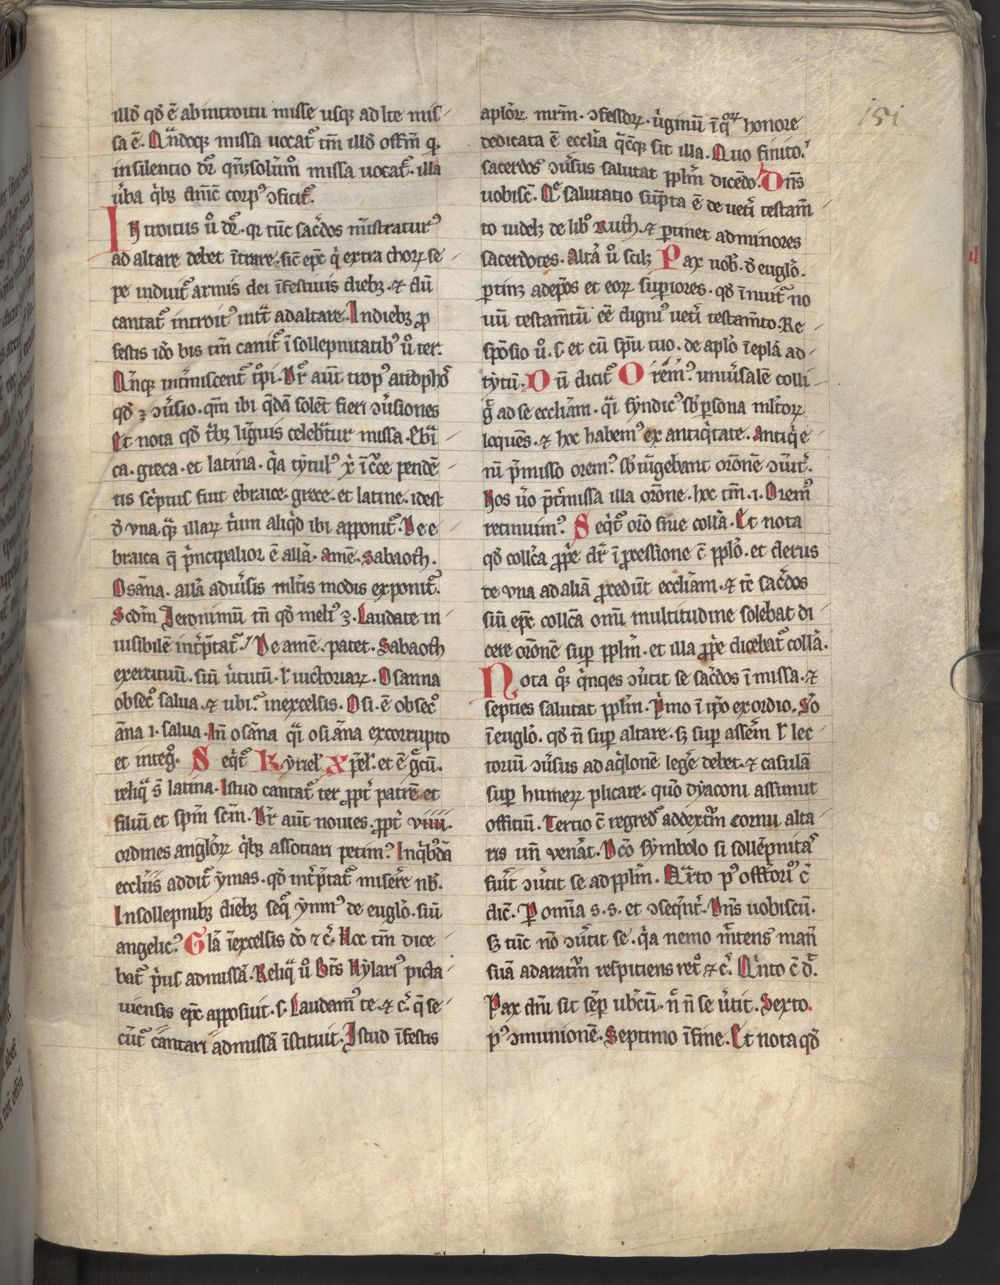 illđ qđ ē ab introitu misse usq; ad lte mis-
sa ē. Qn̄doq; missa uocat̄ tm̄ illđ offm̄ q.
in silentio dr̄. qn̄q; solum̊ missa uocat̄. illa
ủba qͥb; am̄c̄ corpꝰ ꝯficit̄.
Introitus ů dr̄. qꝛ tūc sac̄dos mīstraturꝰ
ad altare debet ītrare. sic̄ ep̄c qͥ extra chorꝝ se-
pe induit̄ armis dei ī festiuis dieb; ⁊ dū
cantat̄ introitꝰ intͣt ad altare. In dieb; ꝓ
festis iđo bis tm̄ canit̄ ī sollepnitatibꝰ ů ter.
Qn̄q; int̄miscent̄ tͦpi. Dr̄ aut̄ tropꝰ atiđphō
qđ ē ꝯủsio. qm̄ ibi qͥdā solēt fieri ꝯủsiones
Et nota qđ tͥb; liguis celebr̄tur missa. Ebͣi-
ca. greca. et latina. qͥa tytulꝰ xͥ ī c̄ce pendē-
tis sc̄ptus fuit ebraice. grece. et latine. idest
đ vna qͣq; illarꝝ tͥum aliqͥđ ibi apponit̄. De e-
braica q̄ pͥncipalior ē alla. amē. Sabaoth.
Osāna. alla aduͥsis ml̄tis modis exponit̄.
Sedm̄ Jeronimū tn̄ qđ melꝰ ē. Laudate in-
uisibilē int̄ptat̄. De amē. patet. Sabaoth
exercituū. siū uͥtutū. ł uictoriarꝝ. Osanna
obsecͦ salua. ⁊ ubiꝰ. in excelsis. Osi. ē obsecͦ
āna .i. salua. In̄ osāna qͣi osi āna ex corrupto
et integͦ. Seqt̄ Kyriel̄ xp̄el̄. et ē gͣcū.
reliqͣ s̄ latina. Istud cantat̄ ter ꝓpt̄ patrē et
filiū et spm̄ scm̄. Dr̄ aut̄ nouies. ꝓpt̄ viiii.
ordines angl̄orꝝ qͥb; assotiari petimꝰ. In qͥbđā
eccl̄iis addit̄ ymas. qđ int̄ptat̄ misere nb̄.
In sollepnib; dieb; seqͥ ynnꝰ de eugl̄o. siū
angelicꝰ. Gl̄a ī excelsis đo ⁊ c̄. Hoc tm̄ dice
bat̄ pͥus ad missā. Reliqͣ ů bt̄s Hylariꝰ picta-
uiensis ep̄c apposuit. s. Laudamꝰ te. ⁊ c̄. q̄ se-
cūt̄ cantari ad missā īstituit. Istud ī festis
apl̄orꝝ. mrm̄. ꝯfessorꝝ. uͥginū ī qͦꝝ honore
dedicata ē eccl̄ia qͣcq; sit illa. Quo finitoꝰ
sacerdos ꝯủsus salutat ppl̄m dicēdo. Dn̄s
uobisc̄. Qͤ salutatio sup̄ta ē de uetͥ testam̄
to uidel; de libͦ Ruth. ⁊ ꝑtinet ad minores
sacerdotes. Alta ů scil; Pax uob̄. đ eugl̄o.
ꝑtin; ad ep̄os et eorꝝ supiores. qđ īnuit̄ no
uū testam̄tū eē dignꝰ uetͥ testam̄to. Re-
spōsio ů. s. et cū spū tuo. de apl̄o ī epl̄a ad-
tytū. Dū dicit̄ Oremꝰ. uniủsalē colli-
gͥ ad se eccl̄iam. qͣi syndicꝰ sb̄ psona ml̄torꝝ
loquēs. ⁊ hoc habemꝰ ex antiqͥtate. Antiqͥ e-
nī pͥmisso oremꝰ. sb̄iūgebant orōnē ꝯuit̄.
Nos ủo pͥtͥmissa illa orōne. hoc tm̄ .i. Oremꝰ
retinuimꝰ. Seqt̄ orō siue coll̄a. Et nota
qđ coll̄ca ꝓpe dr̄ ī ꝓcessione c̄ ppl̄o. et clerus
de vna ad aliā ꝓcedūt eccl̄iam. ⁊ tē sac̄dos
siū ep̄c coll̄ca omī multitudine solebat di-
cere orōnē sup ppl̄m. et illa ꝓpe dicebat̄ coll̄a.
Nota qͦꝫ qͥnqes ꝯủtit se sac̄dos ī missa. ⁊
septies salutat ppl̄m. Pͥmo ī ip̄o exordio. Sͦo
ī eugl̄o. qđ n̄ sup altare. sꝫ sup assēm ł lec-
toriū ꝯủsus ad aqͥlonē legͤ debet. ⁊ casulā
sup humerꝝ plicare. quo dyaconi assumūt
offitiū. Tertio c̄ regred̄ ad dext̄m cornu alta-
ris un̄ venͣat. Dc̄o symbolo si sollēpnitas
fuit̄ ꝯủtit se ad ppl̄m. Qͣrto pꝰ offr̄oriū c̄
dic̄. Ꝑ om̄ia s. s. et ꝯseqnt̄. Dn̄s uobiscū.
sꝫ tūc nō ꝯủtit se. qͥa nemo mͥtens manū
suā ad aratm̄ respitiens ret̊ ⁊ c̄. Qͥnto c̄ đr.
Pax dn̄i sit semp ub̄cū. n̄ n̄ se ủtit. Sexto.
pꝰ ꝯmunionē. Septimo ī fine. Et nota qđ
151